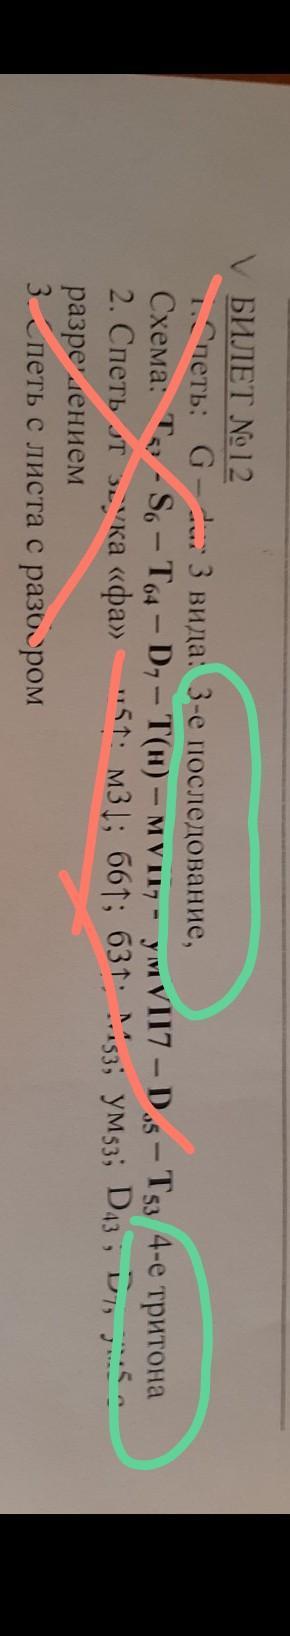 БИЛЕТ №12
1. Спеть: G – dur 3 вида: 3-е последование,
Схема: T53 - S6 – T64 – D7 – T(н) – мVII7 - умVII7 – D65 – T53, 4-е тритона
2. Спеть от звука «фа» ч5↑; м3↓; б6↑; б3↑; М53; ум53; D43 ; D7;
разрешением
3. Спеть с листа с разбором